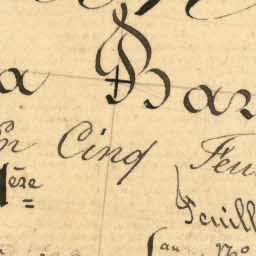 a Bar
En Cinq Feu
1ère
Feuill